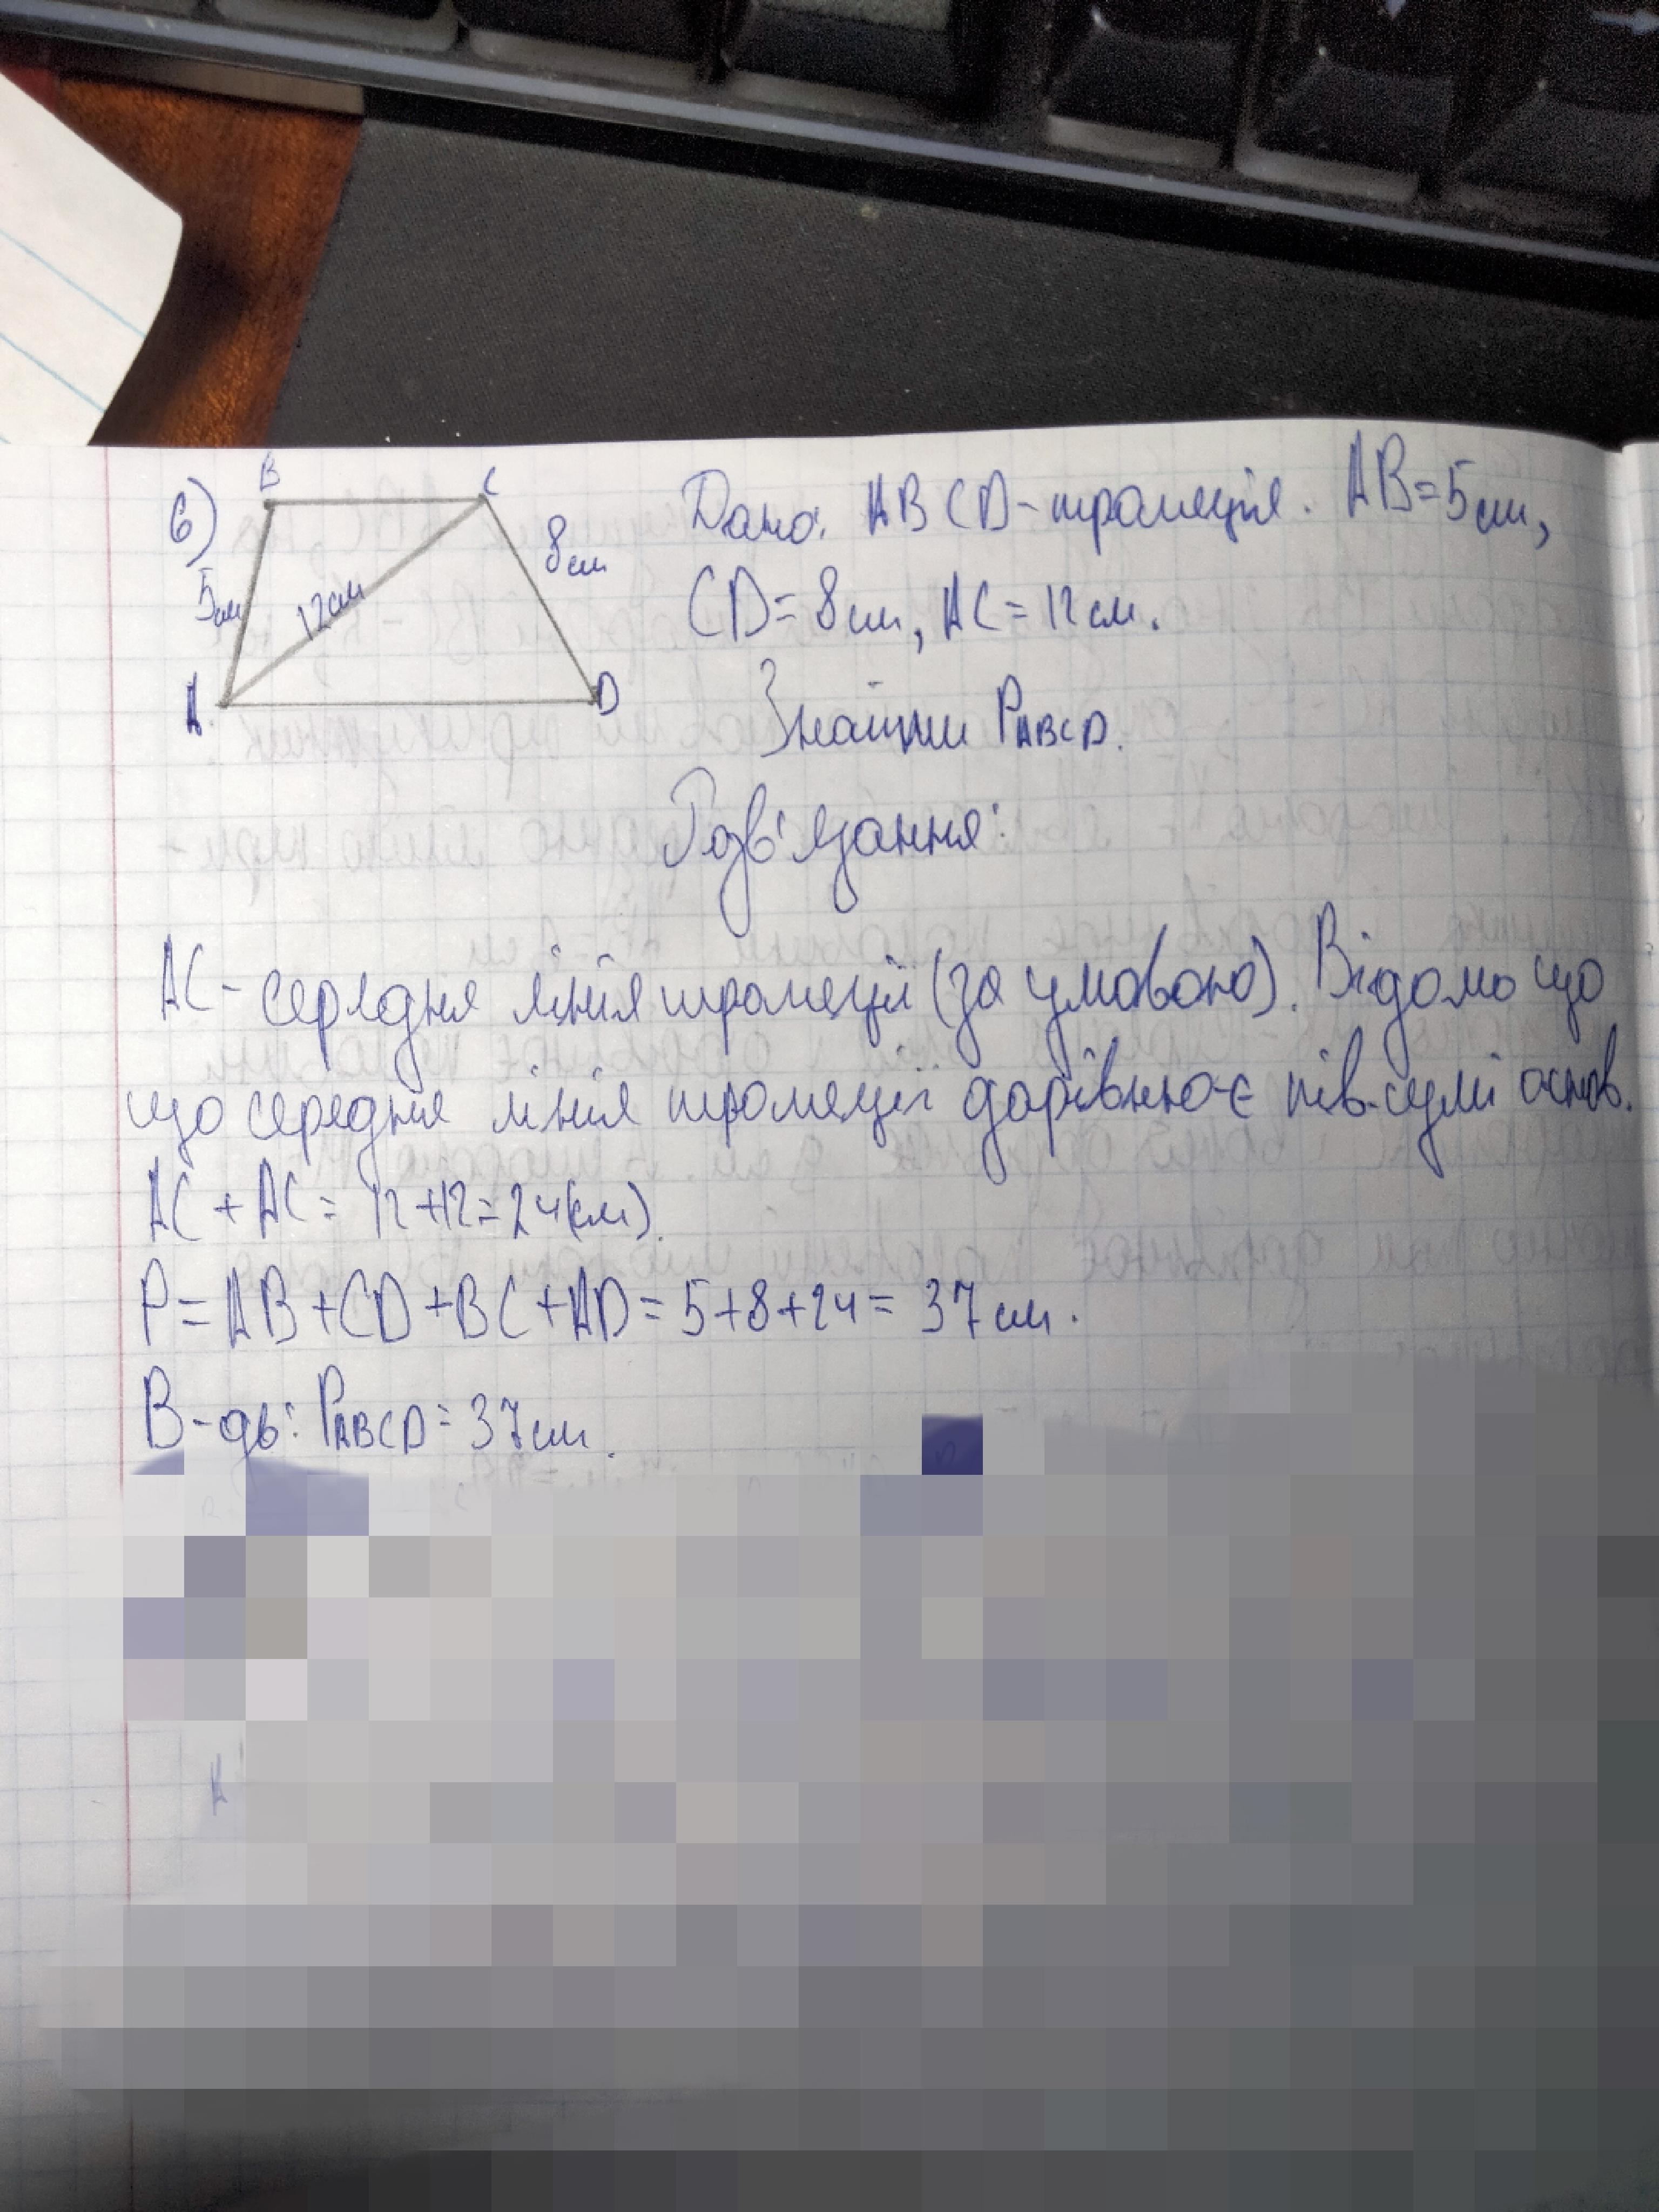 6)
B C
5см
12см
8см
A D
Дано: ABCD-трапеція. AB=5см,
CD=8см, AC=12см.
Знайти PABCD.
Розв'язання:
AC- середня лінія трапеції (за умовою). Відомо що
що середня лінія трапеції дорівнює пів-сумі основ.
AC+AC=12+12=24(см).
P=AB+CD+BC+AD=5+8+24=37см.
В-дь: PABCD=37см.